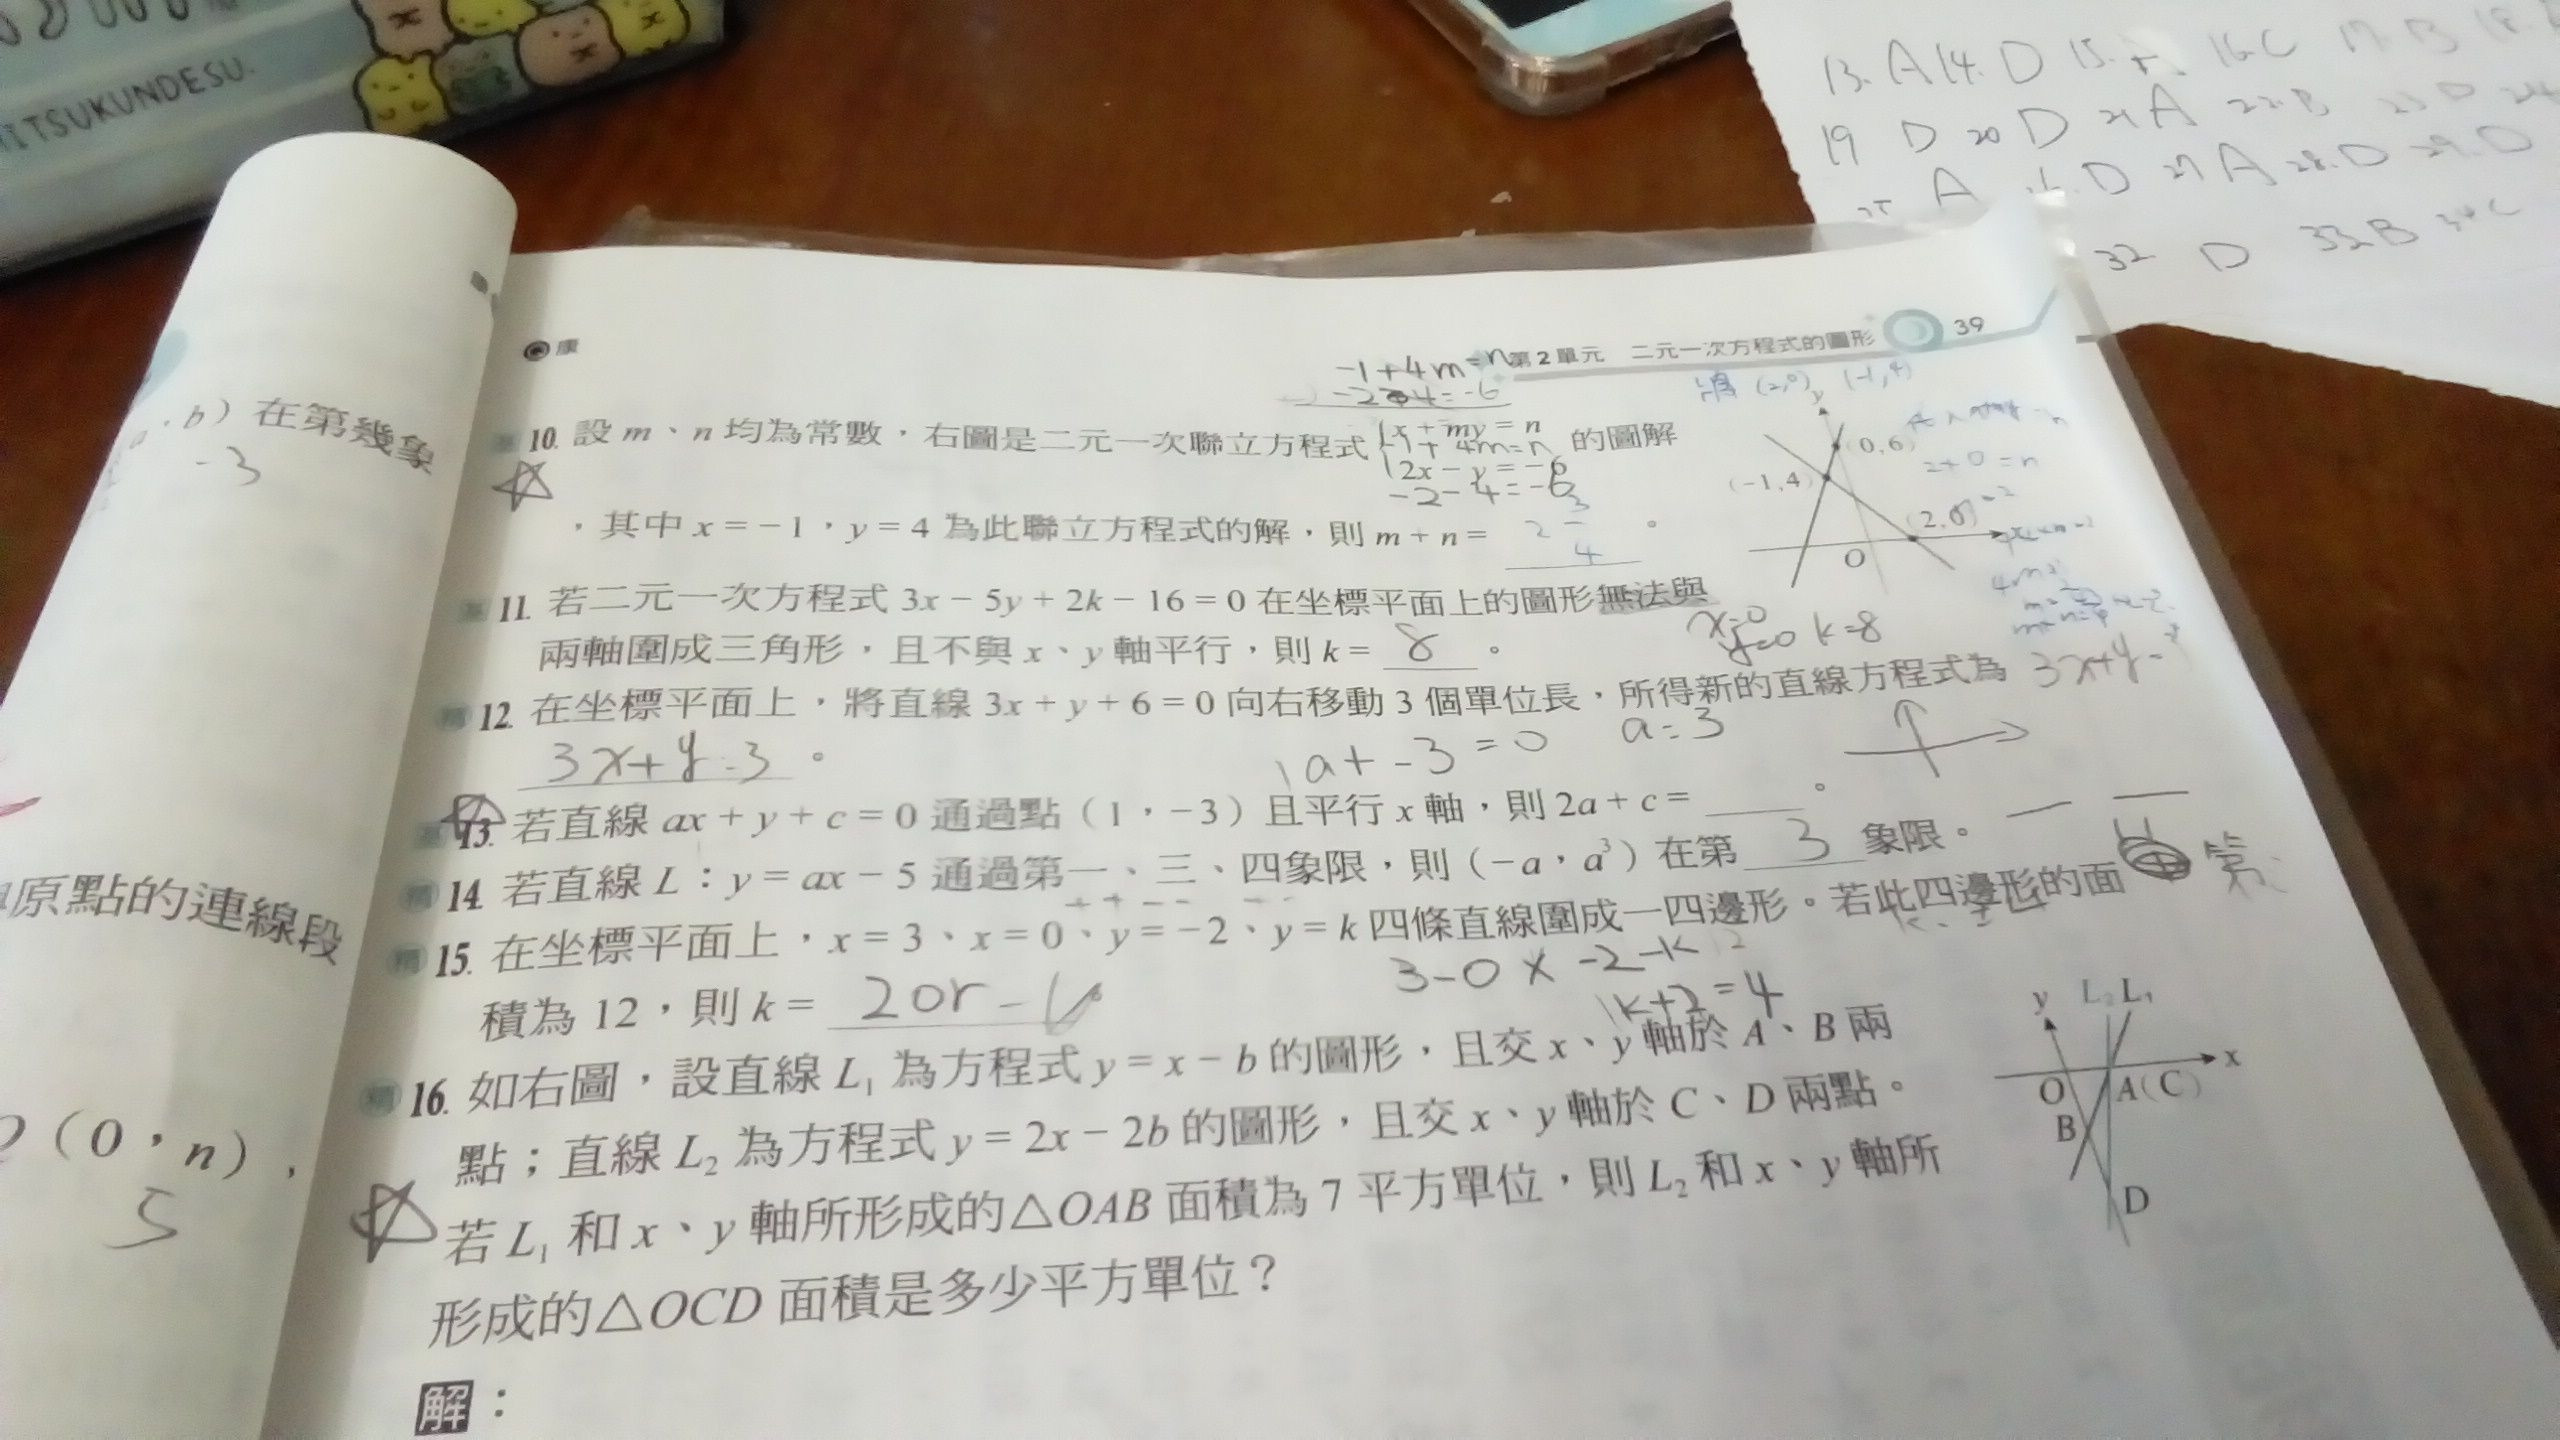 ITSUKUNDESU.
13. A 14. D 15. A 16. C 17. B 18.
19 D 20 D 21 A 22. B 23 D 24
25 A 26. D 27 A 28. D 29. D
32 D 33. B 34 C
康
第2單元 二元一次方程式的圖形 39
-1+4m=n
10. 設 m、n 均為常數，右圖是二元一次聯立方程式 { x + my = n 的圖解
-1+4m=n
2x - y = -6
-2-4=-6
，其中 x = -1，y = 4 為此聯立方程式的解，則 m + n = 2 3/4 。
(2,0) (-1,4)
y
(0,6)
(-1,4)
(2,0)
O
2+0=n
11. 若二元一次方程式 3x - 5y + 2k - 16 = 0 在坐標平面上的圖形無法與
兩軸圍成三角形，且不與 x、y 軸平行，則 k = 8 。
x=0
y=0 k=8
12. 在坐標平面上，將直線 3x + y + 6 = 0 向右移動 3 個單位長，所得新的直線方程式為 3x+y=
3x+y=3 。
1a+-3=0 a=3
13. 若直線 ax + y + c = 0 通過點（1，-3）且平行 x 軸，則 2a + c = 。
14. 若直線 L：y = ax - 5 通過第一、三、四象限，則（-a，a³）在第 3 象限。
第
15. 在坐標平面上，x = 3、x = 0、y = -2、y = k 四條直線圍成一四邊形。若此四邊形的面
3-0 × -2-k 12
積為 12，則 k = 2or-6
k+2=4
16. 如右圖，設直線 L₁ 為方程式 y = x - b 的圖形，且交 x、y 軸於 A、B 兩
點；直線 L₂ 為方程式 y = 2x - 2b 的圖形，且交 x、y 軸於 C、D 兩點。
若 L₁ 和 x、y 軸所形成的△OAB 面積為 7 平方單位，則 L₂ 和 x、y 軸所
形成的△OCD 面積是多少平方單位？
y L₂ L₁
x
O A(C)
B
D
解：
b）在第幾象
-3
原點的連線段
（0，n），
5